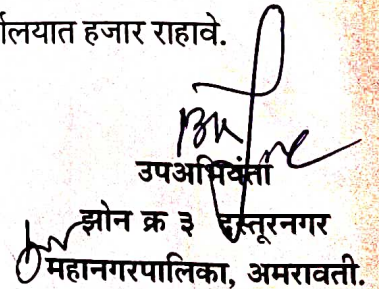 र्लयात हजार राहावे.
उपअभियंता
झोन क्र ३ दस्तूरनगर
महानगरपालिका, अमरावती.